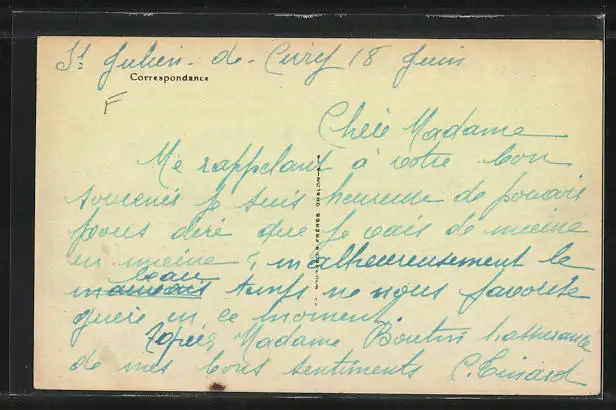 St Julien-de-Civry 18 Juin
Correspondance
F
Chère Madame
Me rappelant à votre bon
souvenir je suis heureuse de pouvoir
vous dire que je vais de mieux
en mieux ; malheureusement le
beau
mauvais temps ne nous favorise
guère en ce moment
Madame Boutin l'assurance
de mes bons sentiments
FRÈRES, CHALON-S-S